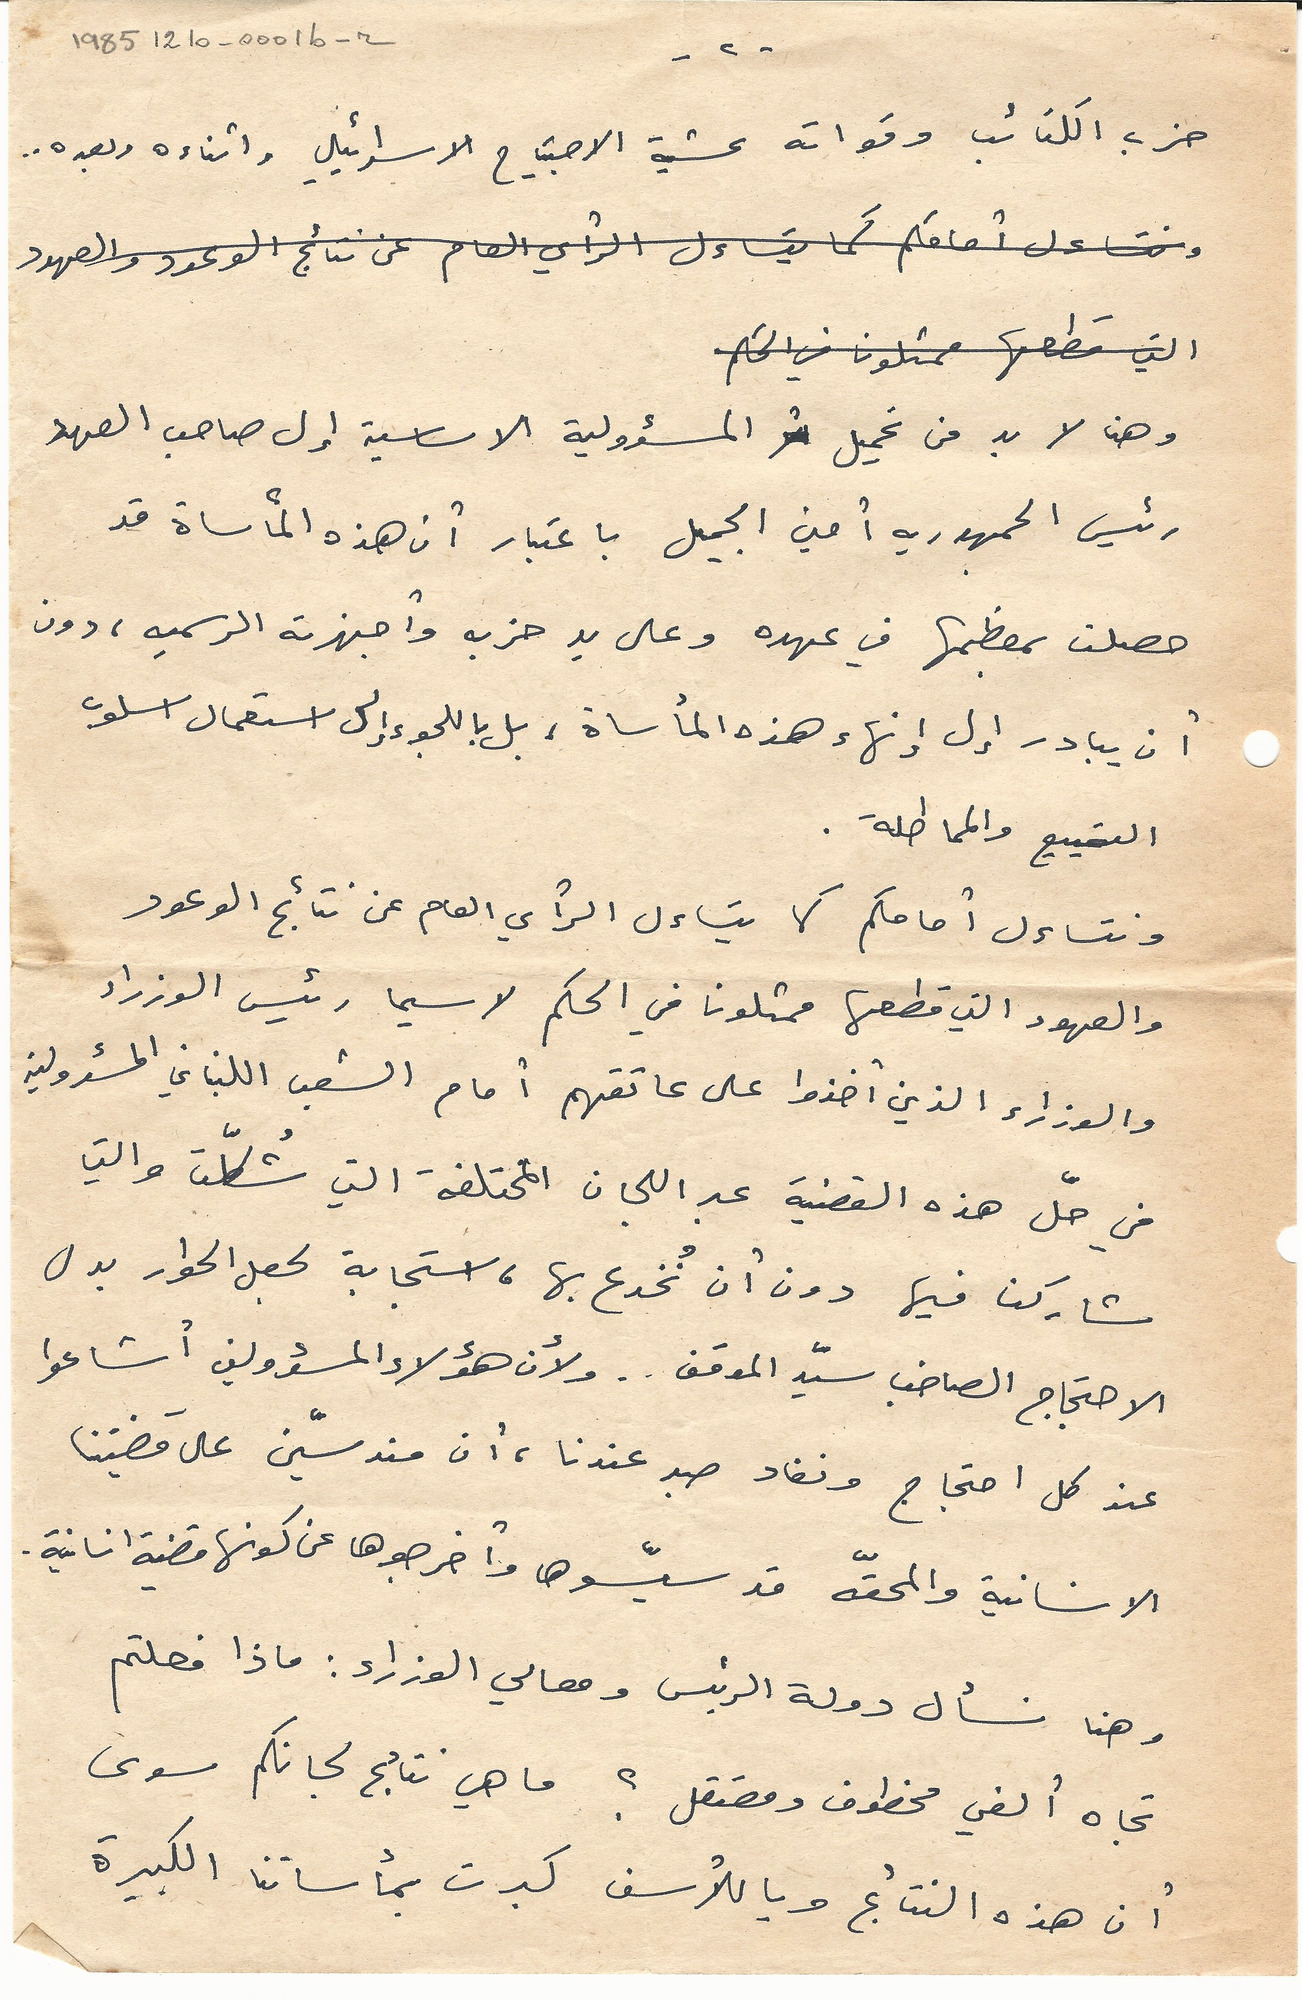 19851210-0001b-r
- ٢ -
حزب الكتائب وقواته عشية الاجتياح الاسرائيلي واثناءه وبعده..
ونتساءل أمامكم كما يتساءل الرأي العام عن نتائج الوعود والعهود
التي قطعها ممثلونا في الحكم
وهنا لا بد من تحميل المسؤولية الاساسية إلى صاحب العهد
رئيس الجمهوريه أمين الجميل باعتبار أن هذه المأساة قد
حصلت بمعظمها في عهده وعلى يد حزبه وأجهزته الرسميه ، دون
أن يبادر إلى إنهاء هذه المأساة ، بل باللجوء إلى استعمال اسلوب
التمييع والمماطلة .
ونتساءل أمامكم كما يتساءل الرأي العام عن نتائج الوعود
والعهود التي قطعها ممثلونا في الحكم لا سيما رئيس الوزراء
والوزراء الذين أخذوا على عاتقهم أمام الشعب اللبناني المسؤولية
في حلّ هذه القضية عبر اللجان المختلفة التي شُكلّت والتي
شاركنا فيها دون أن نُخدع بها ، استجابة لجعل الحوار بدل
الاحتجاج الصاخب سيّد الموقف .. ولأن هؤلاء المسؤولين أشاعوا
عند كل احتجاج ونفاد صبر عندنا ، أن مندسّين على قضيتنا
الانسانية والمحقّه قد سيّسوها وأخرجوها عن كونها قضية انسانية .
وهنا نسأل دولة الرئيس ومعالي الوزراء : ماذا فعلتم
تجاه ألفي مخطوف ومعتقل ؟ ما هي نتائج لجانكم سوى
أن هذه النتائج ويا للأسف كبرت بمأساتنا الكبيرة